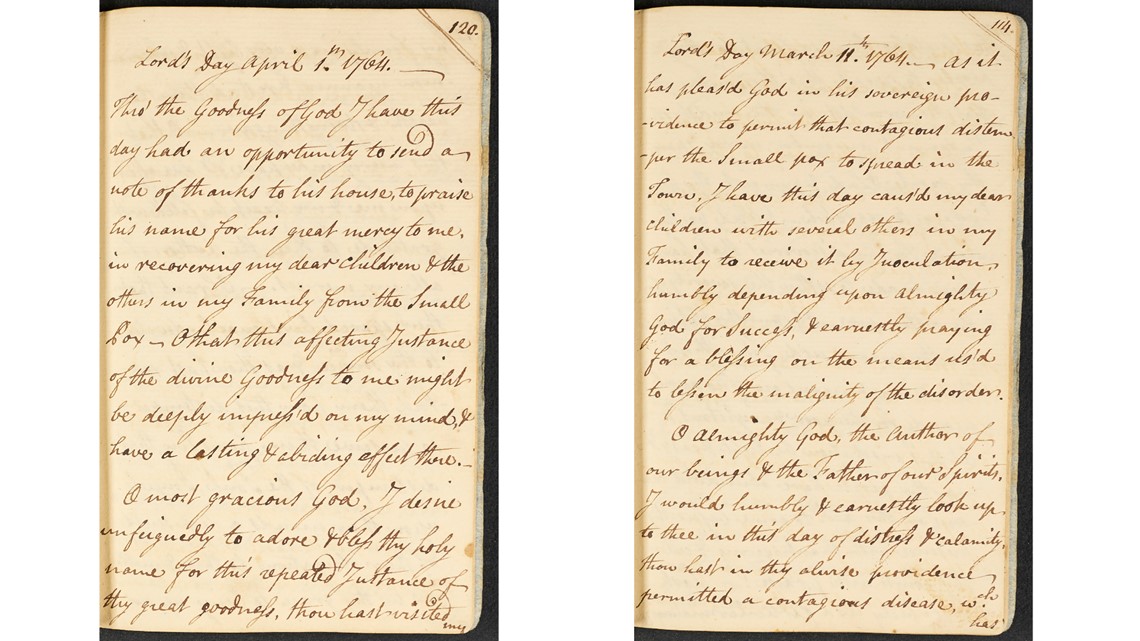 120.
Lord's Day April 1.m 1764.—
Thro' the Goodness of God I have this
day had an opportunity to send a
note of thanks to his house, to praise
his name for his great mercy to me,
in recovering my dear Children & the
others in my Family from the Small
Pox — O that this affecting Instance
of the divine Goodness to me might
be deeply impress'd on my mind, &
have a lasting & abiding affect there.—
O most gracious God, I desire
unfeignedly to adore & bless thy holy
name for this repeated Instance of
thy great goodness, thou hast visited
my
114.
Lord's Day March 11.th 1764.— As it
has pleas'd God in his sovereign pro-
-vidence to permit that contagious distem
-per the Small pox to spread in the
Town, I have this day caus'd my dear
Children with several others in my
Family to receive it by Inoculation,
humbly depending upon Almighty
God for Success, & earnestly praying
for a blessing on the means us'd
to lessen the malignity of the disorder.
O Almighty God, the Author of
our beings & the Father of our Spirits,
I would humbly & earnestly look up
to thee in this day of distress & calamity,
thou hast in thy alwise providence
permitted a contagious disease, w.ch
has